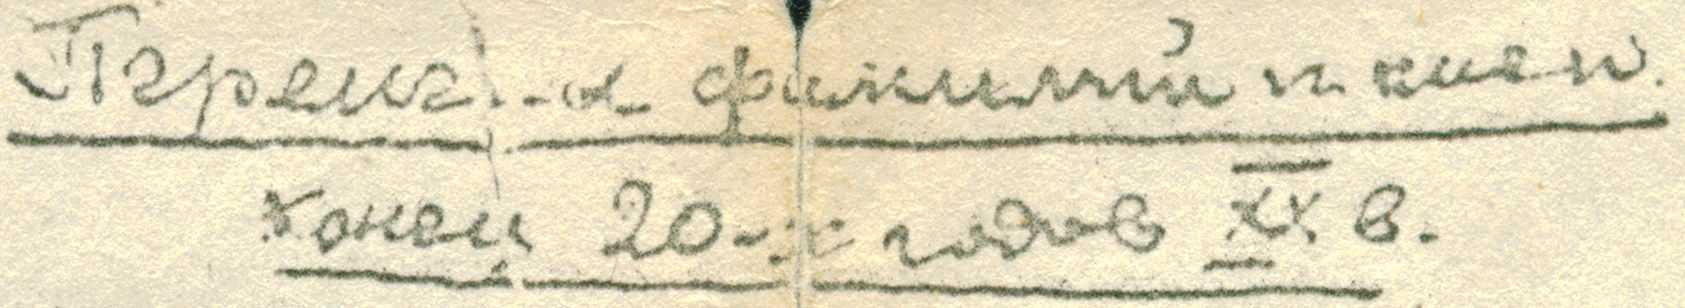 Перемена фамилий и имен.
конец 20-х годов XX в.